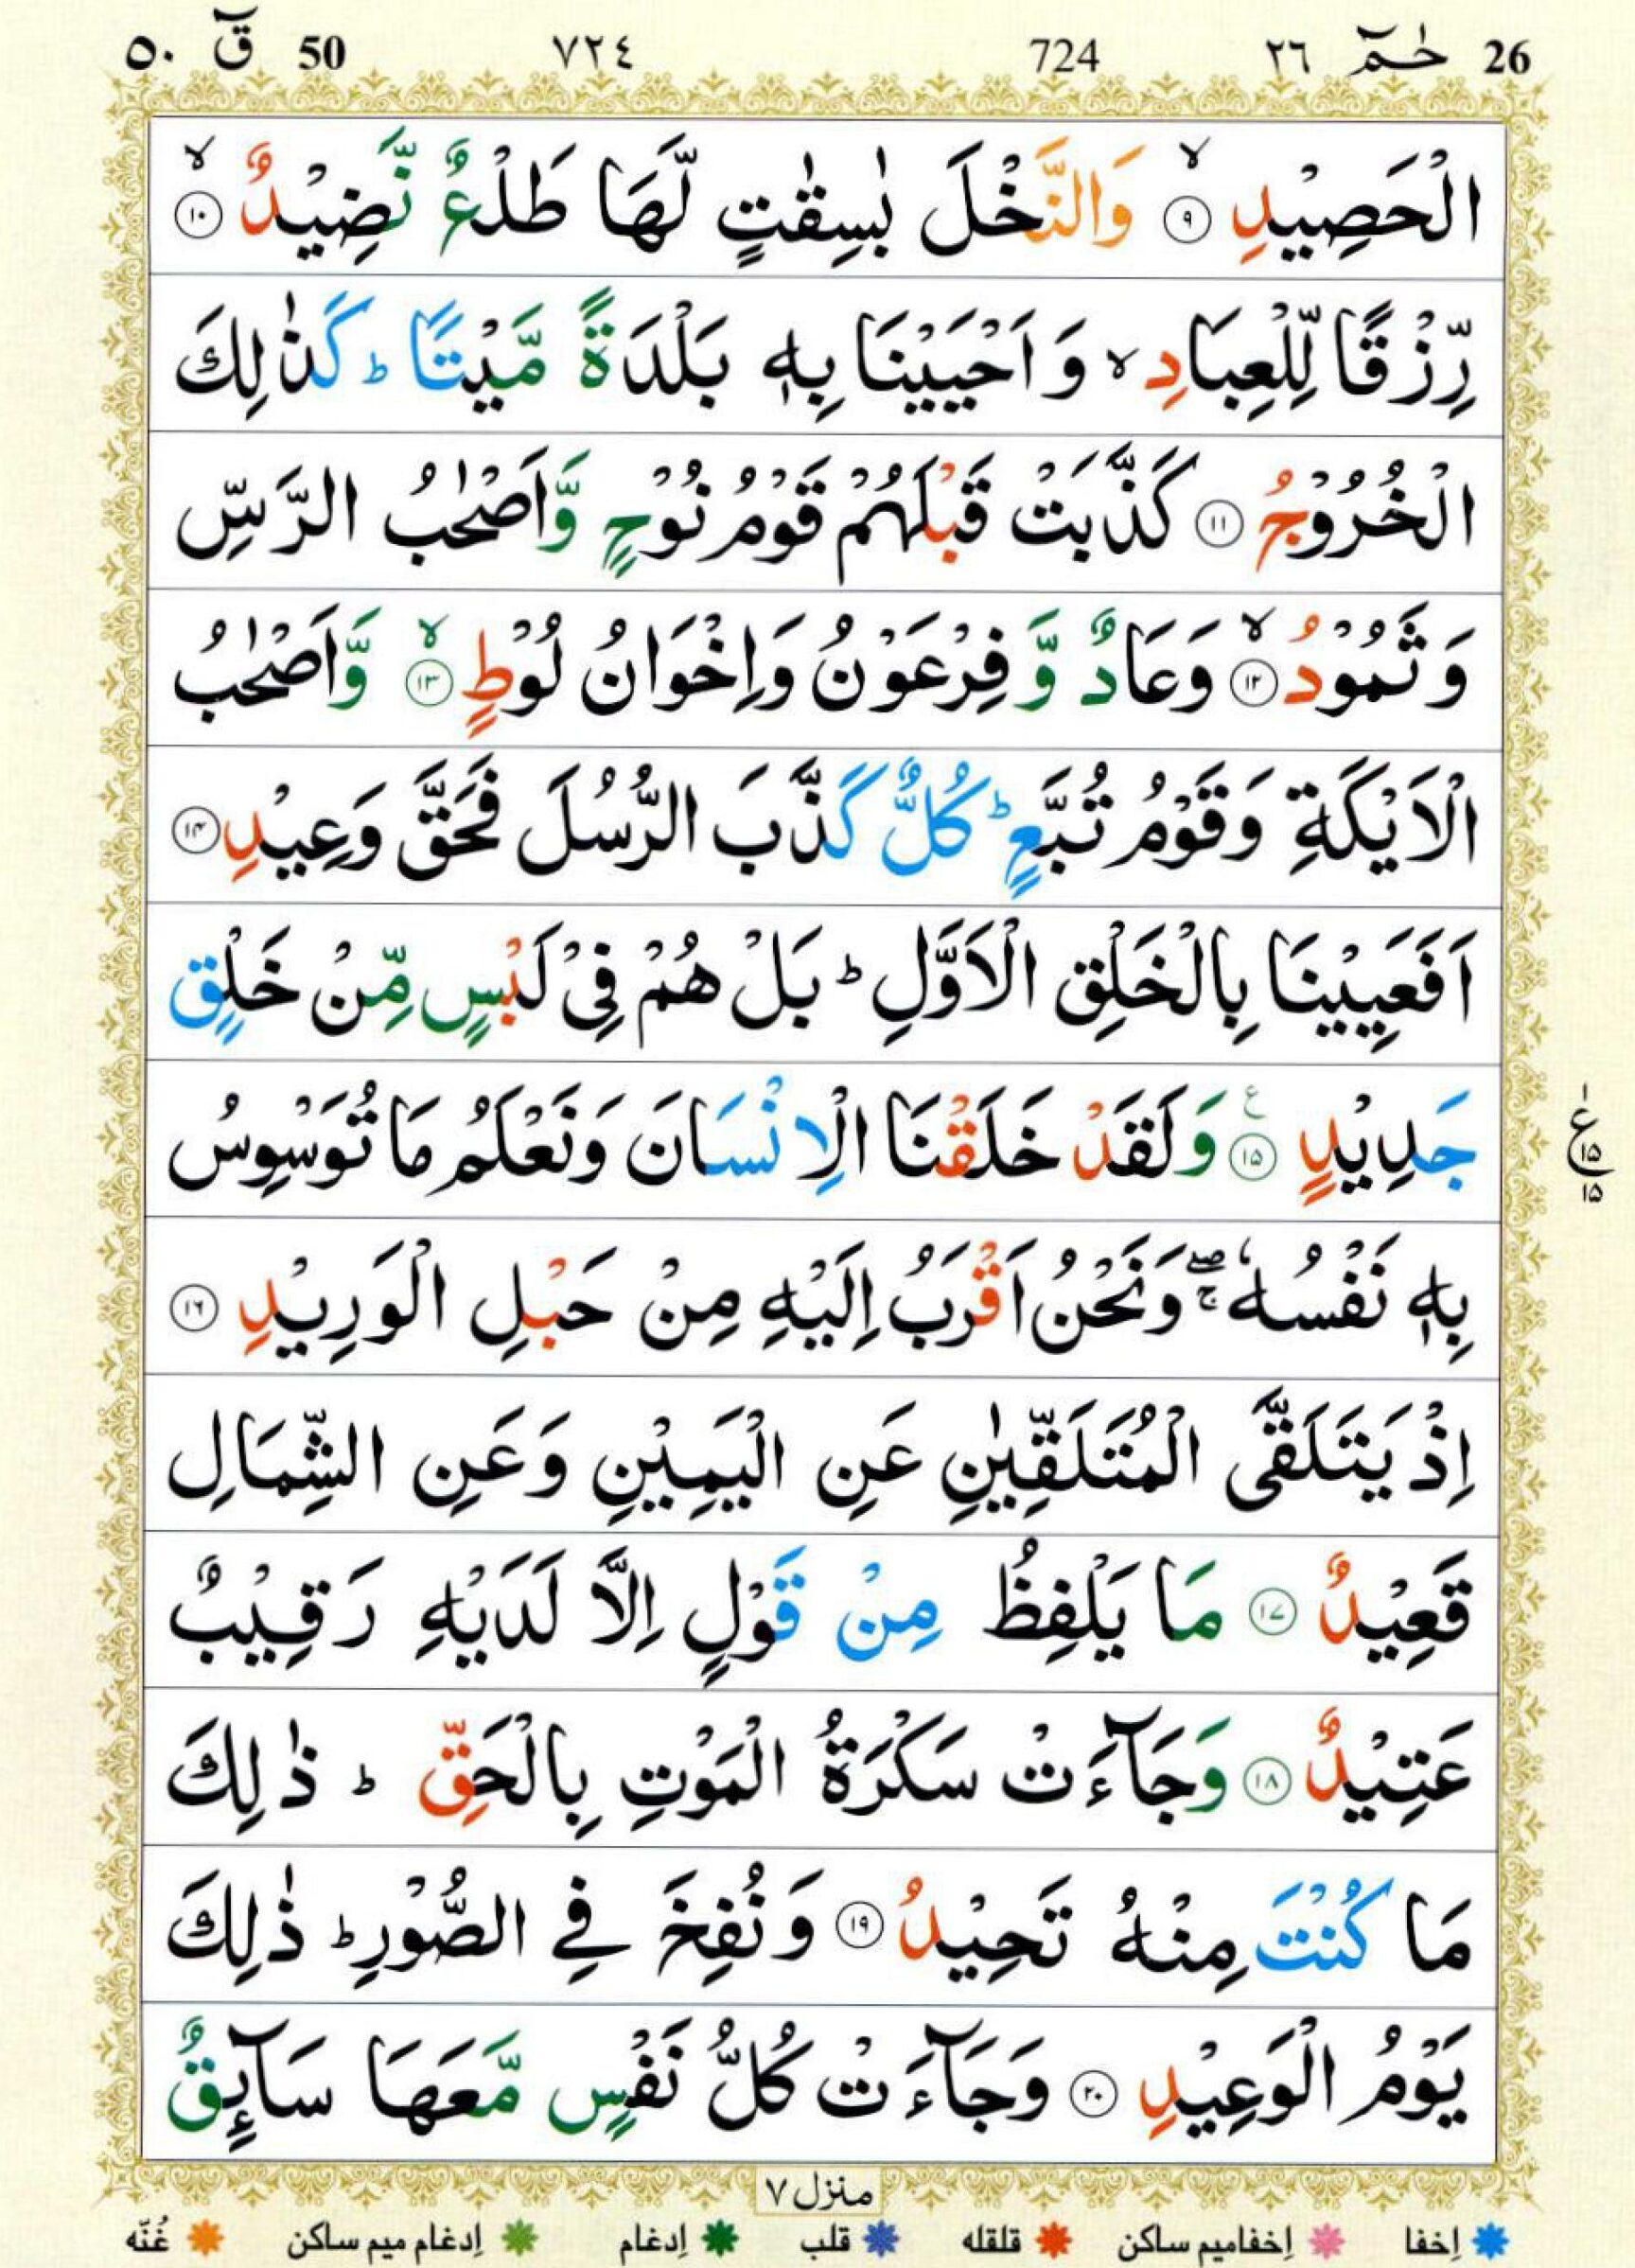 26 حٰـمٓ ٢٦ 724 ٧٢٤ 50 قٓ ٥٠
الْحَصِيْدِ ۙ﴿۹﴾ وَالنَّخْلَ بٰسِقٰتٍ لَّهَا طَلْعٌ نَّضِيْدٌ ۙ﴿۱۰﴾
رِّزْقًا لِّلْعِبَادِ ۙ وَ اَحْيَيْنَا بِهٖ بَلْدَةً مَّيْتًا ؕ كَذٰلِكَ
الْخُرُوْجُ ﴿۱۱﴾ كَذَّبَتْ قَبْلَهُمْ قَوْمُ نُوْحٍ وَّاَصْحٰبُ الرَّسِّ
وَ ثَمُوْدُ ۙ﴿۱۲﴾ وَعَادٌ وَّ فِرْعَوْنُ وَاِخْوَانُ لُوْطٍ ۙ﴿۱۳﴾ وَّاَصْحٰبُ
الْاَيْكَةِ وَقَوْمُ تُبَّعٍ ؕ كُلٌّ كَذَّبَ الرُّسُلَ فَحَقَّ وَعِيْدِ ﴿۱۴﴾
اَفَعَيِيْنَا بِالْخَلْقِ الْاَوَّلِ ؕ بَلْ هُمْ فِیْ لَبْسٍ مِّنْ خَلْقٍ
جَدِيْدٍ ﴿۱۵﴾ ع وَلَقَدْ خَلَقْنَا الْاِنْسَانَ وَنَعْلَمُ مَا تُوَسْوِسُ
ع ۱ ۱۵ ۱۵
بِهٖ نَفْسُهٗ ۚۖ وَنَحْنُ اَقْرَبُ اِلَيْهِ مِنْ حَبْلِ الْوَرِيْدِ ﴿۱۶﴾
اِذْ يَتَلَقَّى الْمُتَلَقِّيٰنِ عَنِ الْيَمِيْنِ وَعَنِ الشِّمَالِ
قَعِيْدٌ ﴿۱۷﴾ مَا يَلْفِظُ مِنْ قَوْلٍ اِلَّا لَدَيْهِ رَقِيْبٌ
عَتِيْدٌ ﴿۱۸﴾ وَجَآءَتْ سَكْرَةُ الْمَوْتِ بِالْحَقِّ ؕ ذٰلِكَ
مَا كُنْتَ مِنْهُ تَحِيْدُ ﴿۱۹﴾ وَ نُفِخَ فِي الصُّوْرِ ؕ ذٰلِكَ
يَوْمُ الْوَعِيْدِ ﴿۲۰﴾ وَجَآءَتْ كُلُّ نَفْسٍ مَّعَهَا سَآىِٕقٌ
منزل ۷
اِخفا اِخفامیم ساکن قلقله قلب اِدغام اِدغام میم ساکن غُنّه